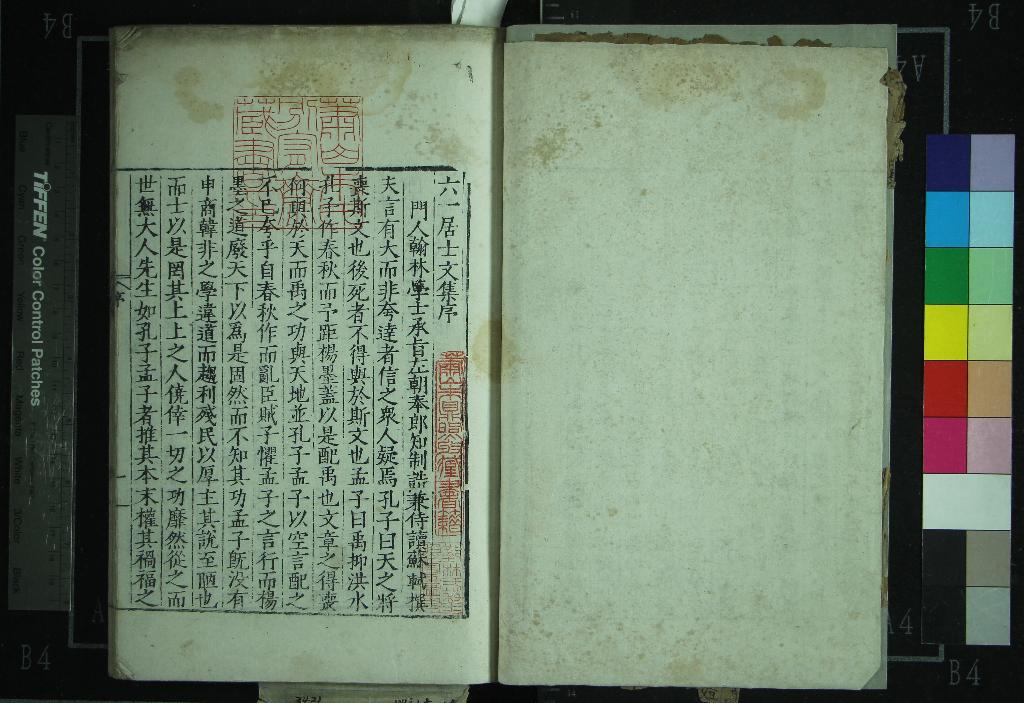 六一居士文集序
門人翰林學士承旨左朝奉郎知制誥兼侍讀蘇軾撰
夫言有大而非夸達者信之衆人疑焉孔子曰天之將
喪斯文也後死者不得與於斯文也孟子曰禹抑洪水
孔子作春秋而予距楊墨蓋以是配禹也文章之得喪
何與於天而禹之功與天地並孔子孟子以空言配之
不已夸乎自春秋作而亂臣賊子懼孟子之言行而楊
墨之道廢天下以爲是固然而不知其功孟子旣没有
申商韓非之學違道而趨利殘民以厚主其說至陋也
而士以是罔其上上之人僥倖一切之功靡然從之而
世無大人先生如孔子孟子者推其本末權其禍福之
序
藏書
TIFFEN Color Control Patches
Blue
Cyan
Green
Yellow
Red
Magenta
White
3/Color
Black
B4
B4
A4
A4
B4
B4